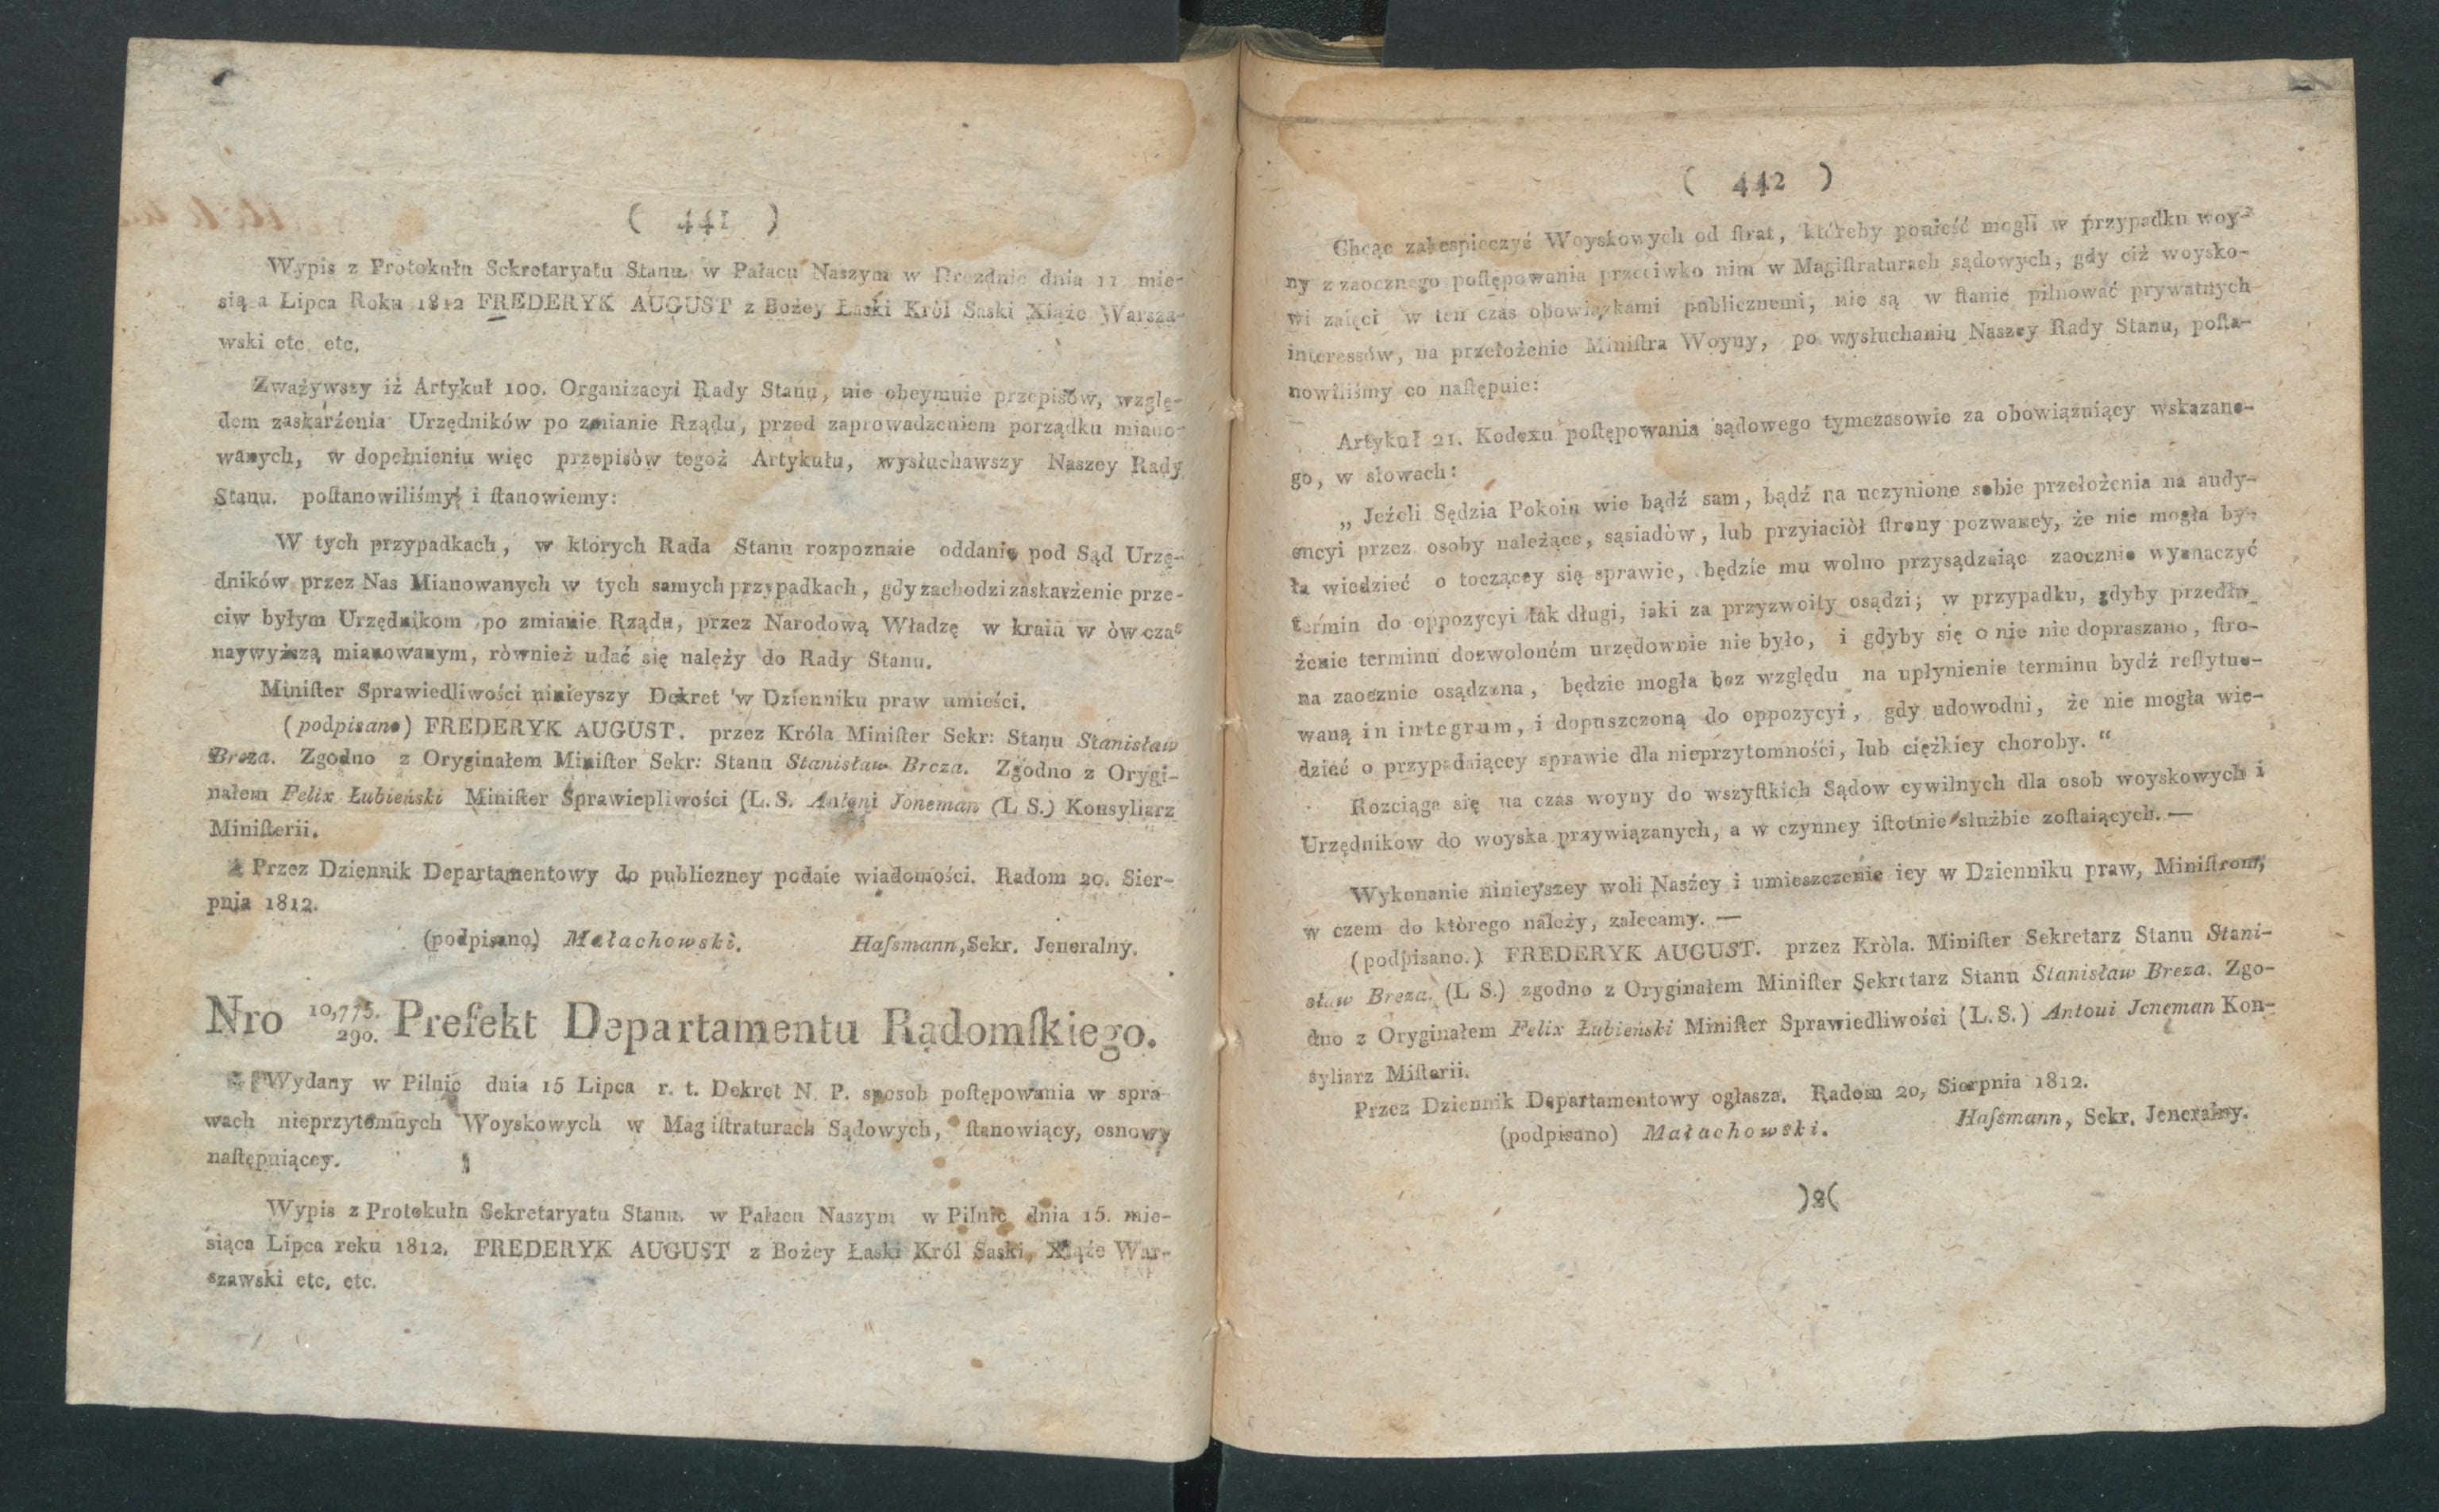 ( 441 )
Wypis z Protokułu Sekretaryatu Stanu. w Pałacu Naszym w Dreznie dnia 11 mie-
sią a Lipca Roku 1812 FREDERYK AUGUST z Bożey Łaski Król Saski Xiąże Warsza-
wski etc. etc.
Zważywszy iż Artykuł 100. Organizacyi Rady Stanu, nie obeymuie przepisów, wzglę-
dem zaskarżenia Urzędników po zmianie Rządu, przed zaprowadzeniem porządku miano-
wanych, w dopełnieniu więc przepisòw tegoż Artykułu, wysłuchawszy Naszey Rady
Stanu. poſtanowiliśmy i ſtanowiemy:
W tych przypadkach, w których Rada Stanu rozpoznaie oddanie pod Sąd Urzę-
dników przez Nas Mianowanych w tych samych przypadkach, gdy zachodzi zaskarżenie prze-
ciw byłym Urzędnikom po zmianie Rządu, przez Narodową Władzę w kraiu w òw czas
naywyższą mianowanym, ròwnież udać się należy do Rady Stanu.
Miniſter Sprawiedliwości ninieyszy Dekret w Dzienniku praw umieści.
(podpisano) FREDERYK AUGUST. przez Króla Miniſter Sekr: Stanu Stanisław
Breza. Zgodno z Oryginałem Miniſter Sekr: Stanu Stanisław Breza. Zgodno z Orygi-
nałem Felix Łubieński Miniſter Sprawiepliwości (L. S. Antoni Joneman (L S.) Konsyliarz
Miniſterii.
Przez Dziennik Departamentowy do publiczney podaie wiadomości. Radom 20. Sier-
pnia 1812.
(podpisano) Małachowski. Haſsmann, Sekr. Jeneralny.
Nro 10,775. 290. Prefekt Departamentu Radomſkiego.
Wydany w Pilnic dnia 15 Lipca r. t. Dekret N. P. sposob poſtępowania w spra-
wach nieprzytomnych Woyskowych w Mag iſtraturach Sądowych, ſtanowiący, osnowy
naſtępuiącey.
Wypis z Protokułu Sekretaryatu Stanu. w Pałacu Naszym w Pilnic dnia 15. mie-
siąca Lipca reku 1812. FREDERYK AUGUST z Bożey Łaski Król Saski, Xiąże War-
szawski etc, etc.
( 442 )
Chcąc zabespieczyć Woyskowych od ſtrat, któreby ponieść mogli w przypadku woy-
ny z zaocznego poſtępowania przeciwko nim w Magiſtraturach sądowych, gdy ciż woysko-
wi zaięci w ten czas obowiązkami publicznemi, nie są w ſtanie pilnować prywatnych
interessów, na przełożenie Miniſtra Woyny, po wysłuchaniu Naszey Rady Stanu, poſta-
nowiliśmy co naſtępuie:
Artykuł 21. Kodexu poſtępowania sądowego tymczasowie za obowiązuiący wskazane-
go, w słowach:
„ Jeżeli Sędzia Pokoiu wie bądź sam, bądź na uczynione sobie przełożenia na audy-
encyi przez osoby należące, sąsiadòw, lub przyiaciòł ſtrony pozwaney, że nie mogła by-
ła wiedzieć o toczącey się sprawie, będzie mu wolno przysądzaiąc zaocznie wyznaczyć
termin do oppozycyi tak długi, iaki za przyzwoity osądzi; w przypadku, gdyby przedłu-
żenie terminu dozwoloném urzędownie nie było, i gdyby się o nie nie dopraszano, ſtro-
na zaocznie osądzona, będzie mogła bez względu na upłynienie terminu bydź reſtytuo-
waną in integrum, i dopuszczoną do oppozycyi, gdy udowodni, że nie mogła wie-
dzieć o przypadaiącey sprawie dla nieprzytomności, lub ciężkiey choroby. “
Rozciąga się na czas woyny do wszyſtkich Sądow cywilnych dla osob woyskowych i
Urzędnikow do woyska przywiązanych, a w czynney iſtotnie służbie zoſtaiących. —
Wykonanie ninieyszey woli Naszey i umieszczenie iey w Dzienniku praw, Miniſtrom,
w czem do którego należy, zalecamy. —
(podpisano.) FREDERYK AUGUST. przez Kròla. Miniſter Sekretarz Stanu Stani-
sław Breza. (L S.) zgodno z Oryginałem Miniſter Sekretarz Stanu Stanisław Breza. Zgo-
dno z Oryginałem Felix Łubieński Miniſter Sprawiedliwości (L. S.) Antoui Joneman Kon-
syliarz Miſterii.
Przez Dziennik Departamentowy ogłasza. Radom 20, Sierpnia 1812.
(podpisano) Małachowski. Haſsmann, Sekr. Jeneralny.
)8(